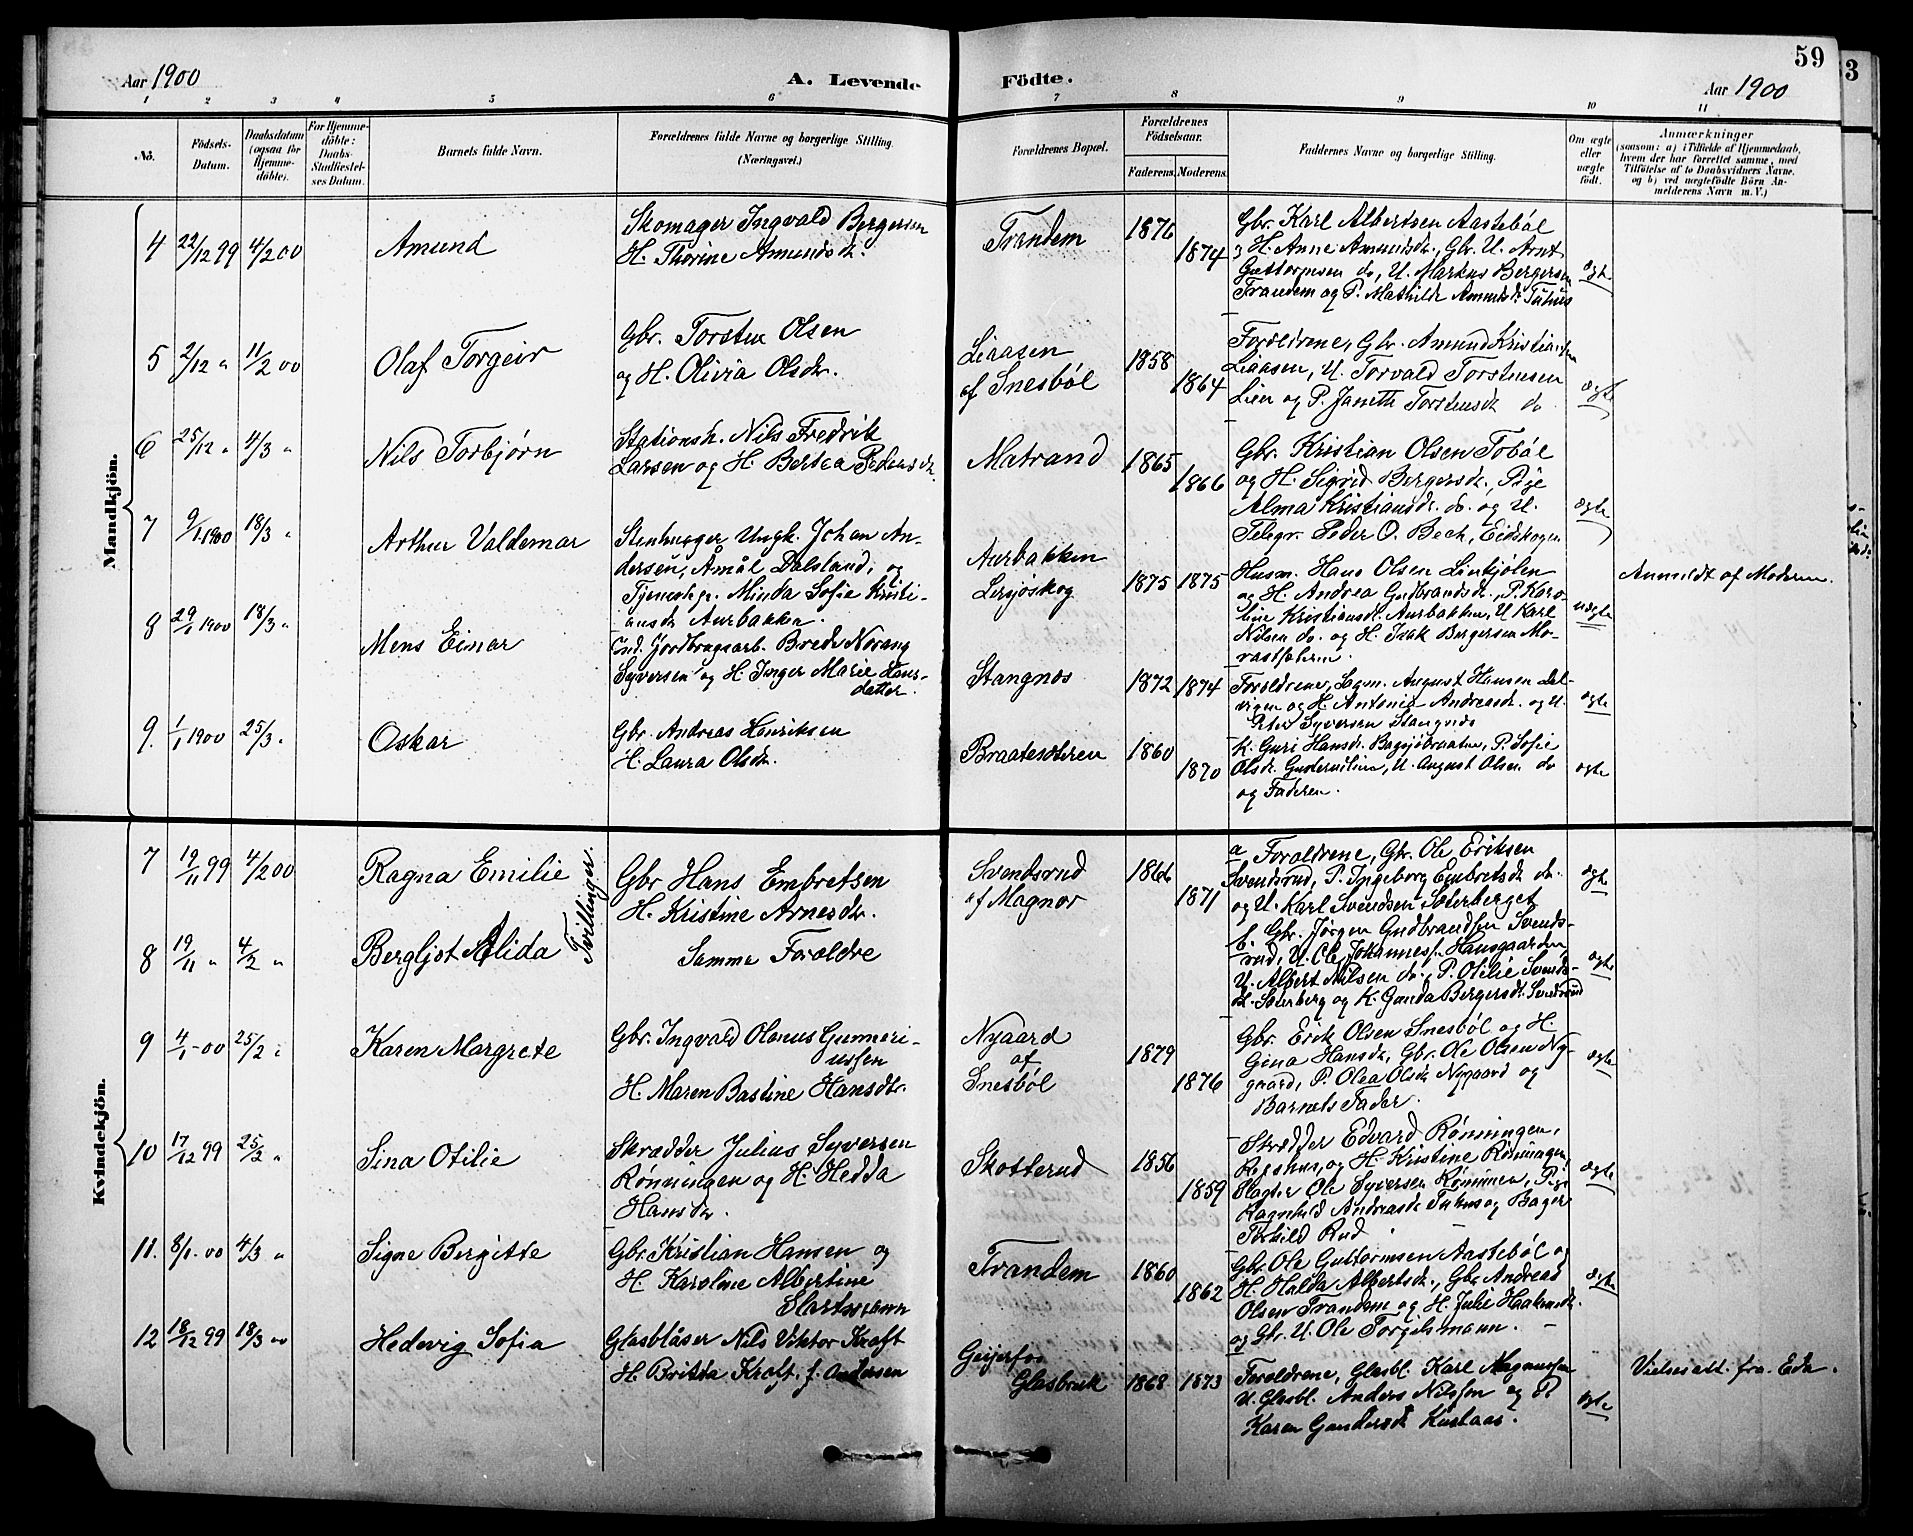 59
3
Aar 1900
A. Levende Födte.
Aar 1900
1 2 3 4 5 6 7 8 9 10 11
No.
Födsels-
Datum.
Daabsdatum
(ogsaa for
Hjemme-
döbte).
For Hjemme-
döbte:
Daabs-
Stadfæstel-
ses Datum.
Barnets fulde Navn.
Forældrenes fulde Navne og borgerlige Stilling.
(Næringsvei.)
Forældrenes Bopæl.
Forældrenes
Födselsaar.
Faderens.
Moderens.
Faddernes Navne og borgerlige Stilling.
Om ægte
eller
uægte
født.
Anmærkninger
(saasom: a) i Tilfælde af Hjemmedaab,
hvem der har forrettet samme, med
Tilføielse af to Daabsvidners Navne.
og b) ved uægtefödte Börn An-
melderens Navn m. V.)
Mandkjön.
4 22/12 99 4/2 00
Amund
Skomager Ingvald Bergersen
H. Thorine Amundsdr.
Trandem
1876
1874
Gbr. Karl Albertsen Aastebøl
og H. Anne Amundsdr., Gbr. U. Arnt
Guttormsen do, U. Markus Bergersen
Trandem og P. Mathilde Amundsdr Tuhus
ægte
5 2/12 " 11/2 00
Olaf Torgeir
Gbr. Torsten Olsen
og H. Olivia Olsdr.
Liaasen
af Snesbøl
1858
1864
Foreldrene, Gbr. Amund Kristiansen
Liaasen, U. Torvald Torstensen
Lien og P. Janette Torstensdr do
ægte
6 25/12 " 4/3 "
Nils Torbjørn
Stationsk. Nils Fredrik
Larsen og H. Bertea Pedersdr.
Matrand
1865
1866
Gbr. Kristian Olsen Tobøl
og H. Sigrid Bergersdr., Pige
Alma Kristiansdr. do. og U.
Telegr. Peder O. Bech, Eidskogen
ægte
7 9/1 1900 18/3 "
Arthur Valdemar
Stenhugger Ungk. Johan An-
dersen, Åmål Dalsland, og
Tjenestep. Minda Sofie Kristi-
ansdr Aurbakken.
Aurbakken
Lersjøskog
1875 1875
Husm. Hans Olsen Linkjølen
og H. Andrea Gudbrandsdr., P. Karo-
line Kristiansdr. Aurbakken, U Karl
Nilsen do. og H. Isak Bergersen Mo-
rastfæteren.
uægte
Anmeldt af Moderen.
8 29/1 1900 18/3 "
Mens Einar
Ind. Jordbrugsarb. Brede Norang
Syversen og H. Inger Marie Hans-
datter.
Stangnes
1872 1874
Foreldrene, Sagm. August Hansen
og H. Antonie Andreasdr. og U.
Peter Syversen Stangnes
ægte
9. 1/1 1900 25/3 "
Oskar
Gbr. Andreas Henriksen
H. Laura Olsdr.
Braatesæteren
1860
1870
K. Guri Hansdr. Bagsjøbraaten, P. Sofie
Olsdr. , U. August Olsen do
og Faderen.
ægte
Kvindekjön.
7 19/11 99 4/2 00
Ragna Emilie
Tvillinger.
Gbr Hans Embretsen
H. Kristine Arnesdr.
Svendsrud
af Magnor
1866
1871
a Foreldrene, Gbr. Ole Eriksen
Svendsrud, P. Ingeborg Embretsdr do.
og U. Karl Svendsen Sæterberget
ægte
8 19/11 " 4/2 "
Bergljot Alida
Samme Foreldre
b. Gbr. Jørgen Gudbrandsen Svends-
rud, U. Ole Johannesf. Hansgaarden
U. Albert Nilsen do., P. Otilie Svends-
dr. Sæterberg og K. Gunda Bergersdr. Svendsrud
ægte
9 4/1 - 00 25/2 "
Karen Margrete
Gbr. Ingvald Olanus Gunneri-
ussen
H. Maren Bastine Hansdtr.
Nygaard
af
Snesbøl
1879
1876
Gbr. Erik Olsen Snesbøl og H.
Gina Hansdr, Gbr. Ole Olsen Ny-
gaard, P. Olea Olsdr Nygaard og
Barnets Fader.
ægte
10 17/12 99 25/2 "
Sina Otilie
Skrædder Julius Syversen
Rønningen og H. Hedda
Hansdr.
Skotterud
1856
1859
Skrædder Edvard Rønningen,
Repshus, og H. Kristine Rønningen,
Slagter Ole Syversen Rønningen, Pige
Ragnhild Andreasdr Tuhus og Bager
Torkild Rud
ægte
11. 8/1. 00 4/3 "
Signe Bergitte
Gbr. Kristian Hansen og
H. Karoline Albertine
Slartmann
Trandem
1860
1862
Gbr. Ole Guttormsen Aastebøl og
H. Halda Albertsdr., Gbr. Andreas
Olsen Trandem og H. Julie Haakensdr.
og Gbr. U. Ole Torgilsmann. –
ægte
12 18/12 99 18/3 00
Hedevig Sofia
Glasblåser Nils Viktor Kraft
H. Britta Kraft, f. Andersen
Geijerfos
Glasbruk
1868 1873
Foreldrene, Glasbl. Karl Magnussen
U. Glasbl. Anders Nilssen og P.
Karen Gundersdr Kuslaas.
ægte
Vielsesatt. fra Eda.